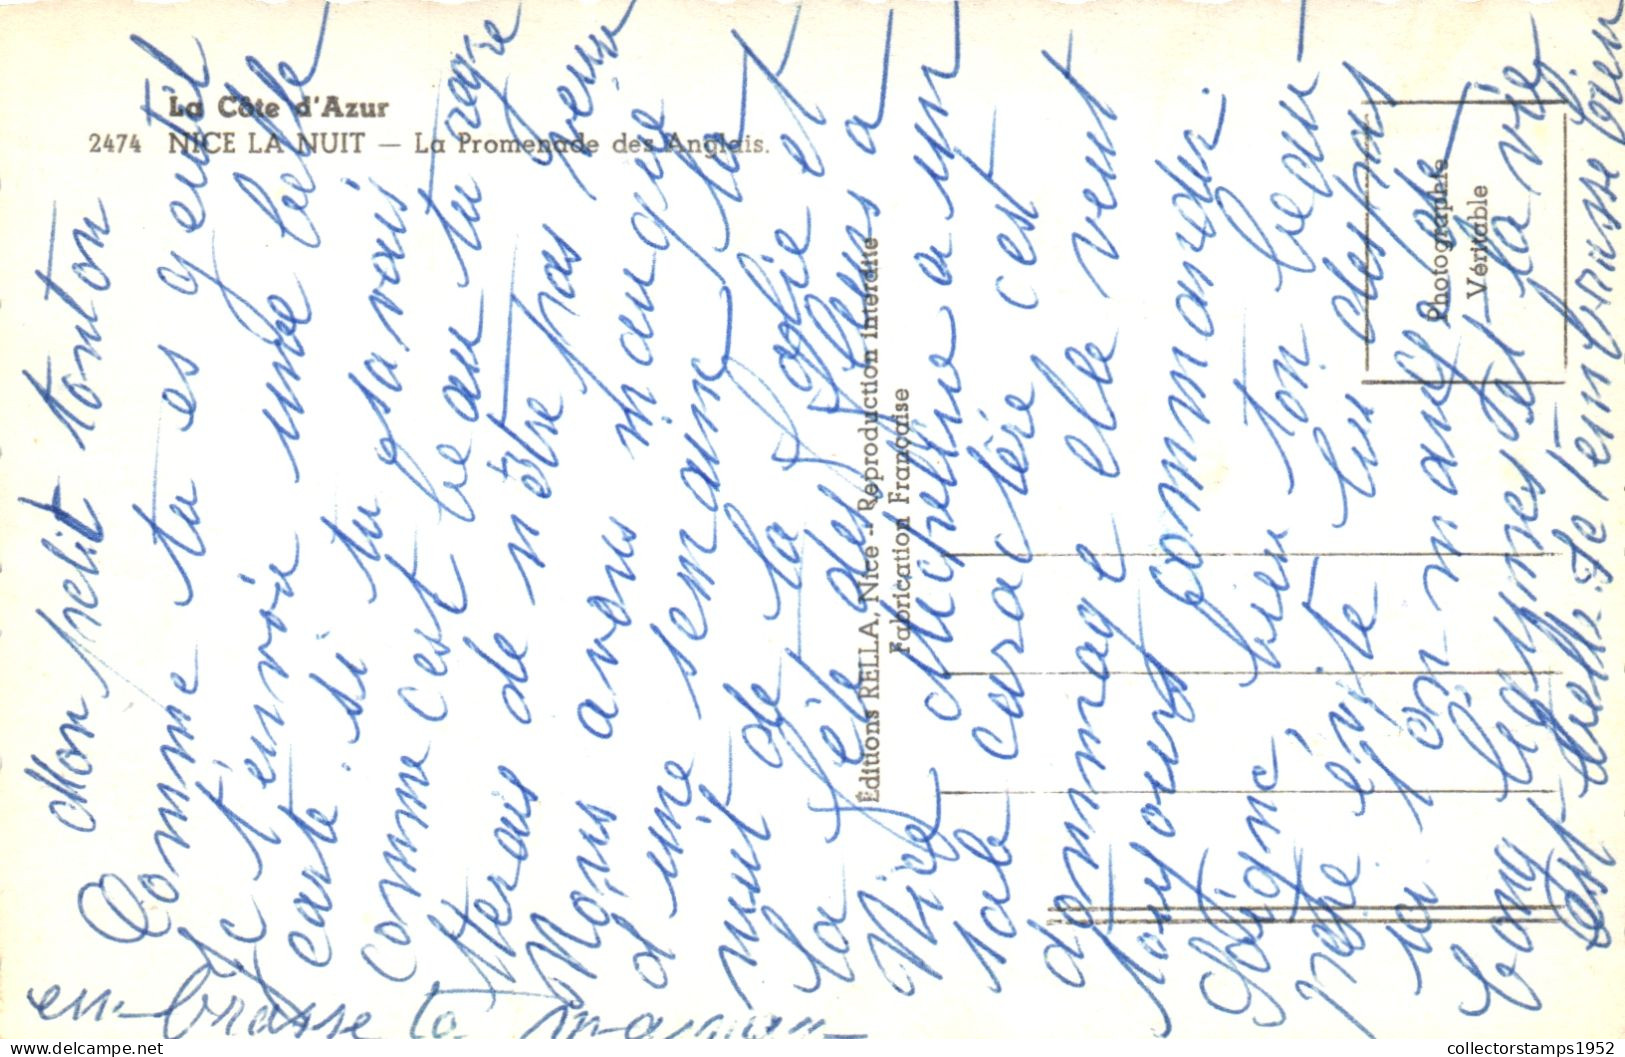 La Côte d'Azur
2474 NICE LA NUIT — La Promenade des Anglais.
Éditions RELLA, Nice - Reproduction interdite
Fabrication Française
Photographie
Véritable
Mon petit tonton
Comme tu es gentil
Je t'envoie une belle
carte. si tu savais
comme cest beau tu
de n'être pas venu
Nous avons manque
d'une semaine la
nuit de la folie et
la fête des fleurs a
Nice Micheline a un
sale caractère c'est
dommage elle veut
toujours commander.
bien ton beau-
père évite lui des pas
ici l'on mange de
bong legumes et la vie
est belle. Je t'embrasse bien
embrasse ta maman
collectorstamps1952